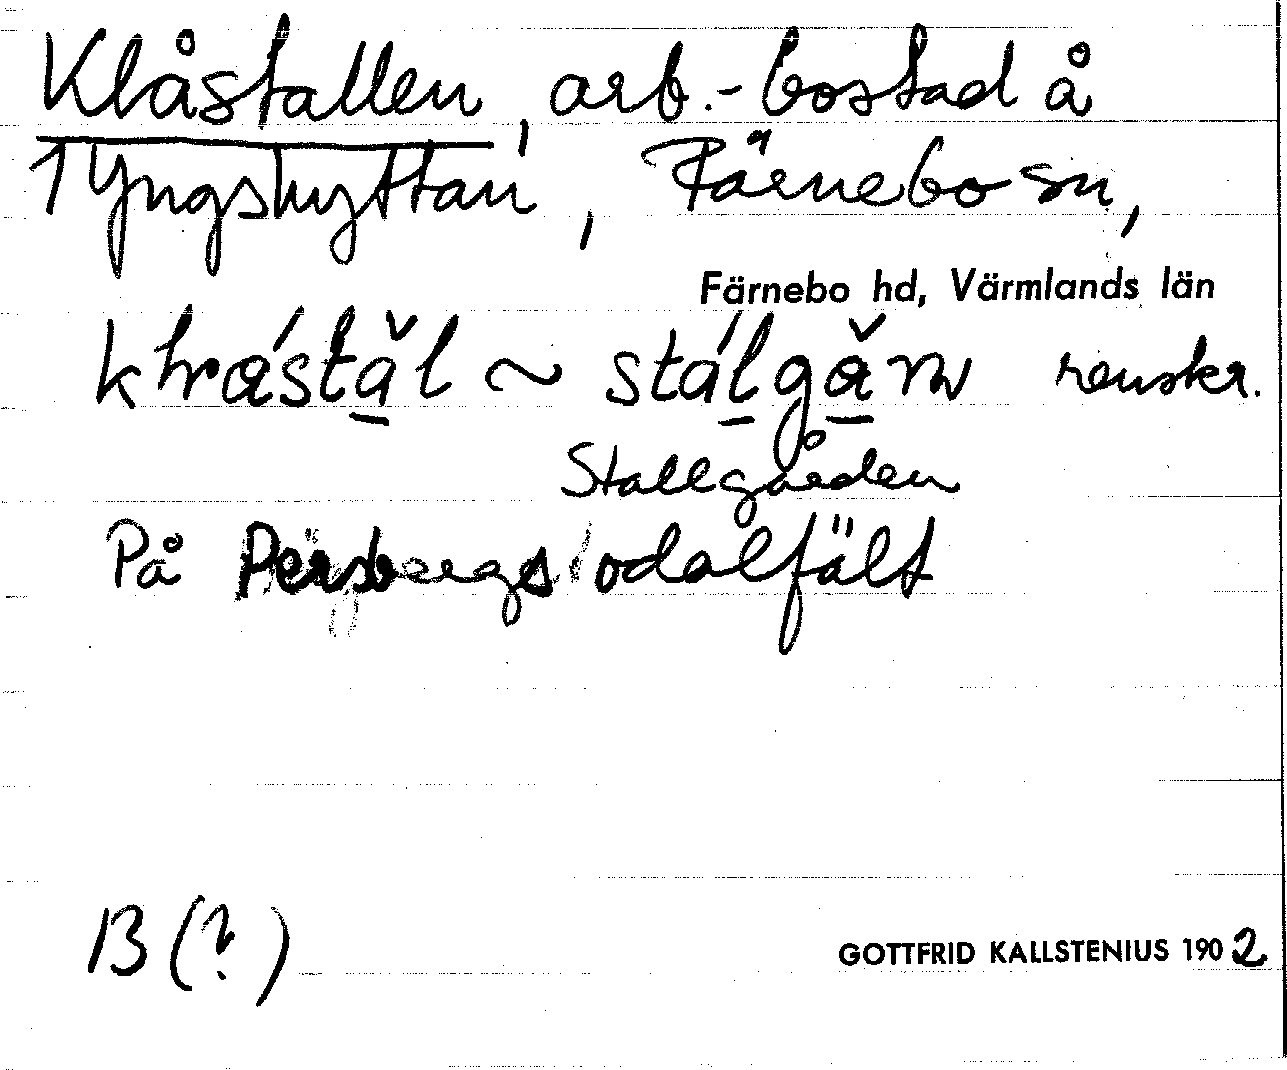 Klåstallen, arb.-bostad å
1 Yngshyttan, Färnebo sn,
Färnebo hd, Värmlands län
stálgǎ̱ɳ renskr.
Stallgården
På Persbergs odalfält
B (?)
GOTTFRID KALLSTENIUS 1902